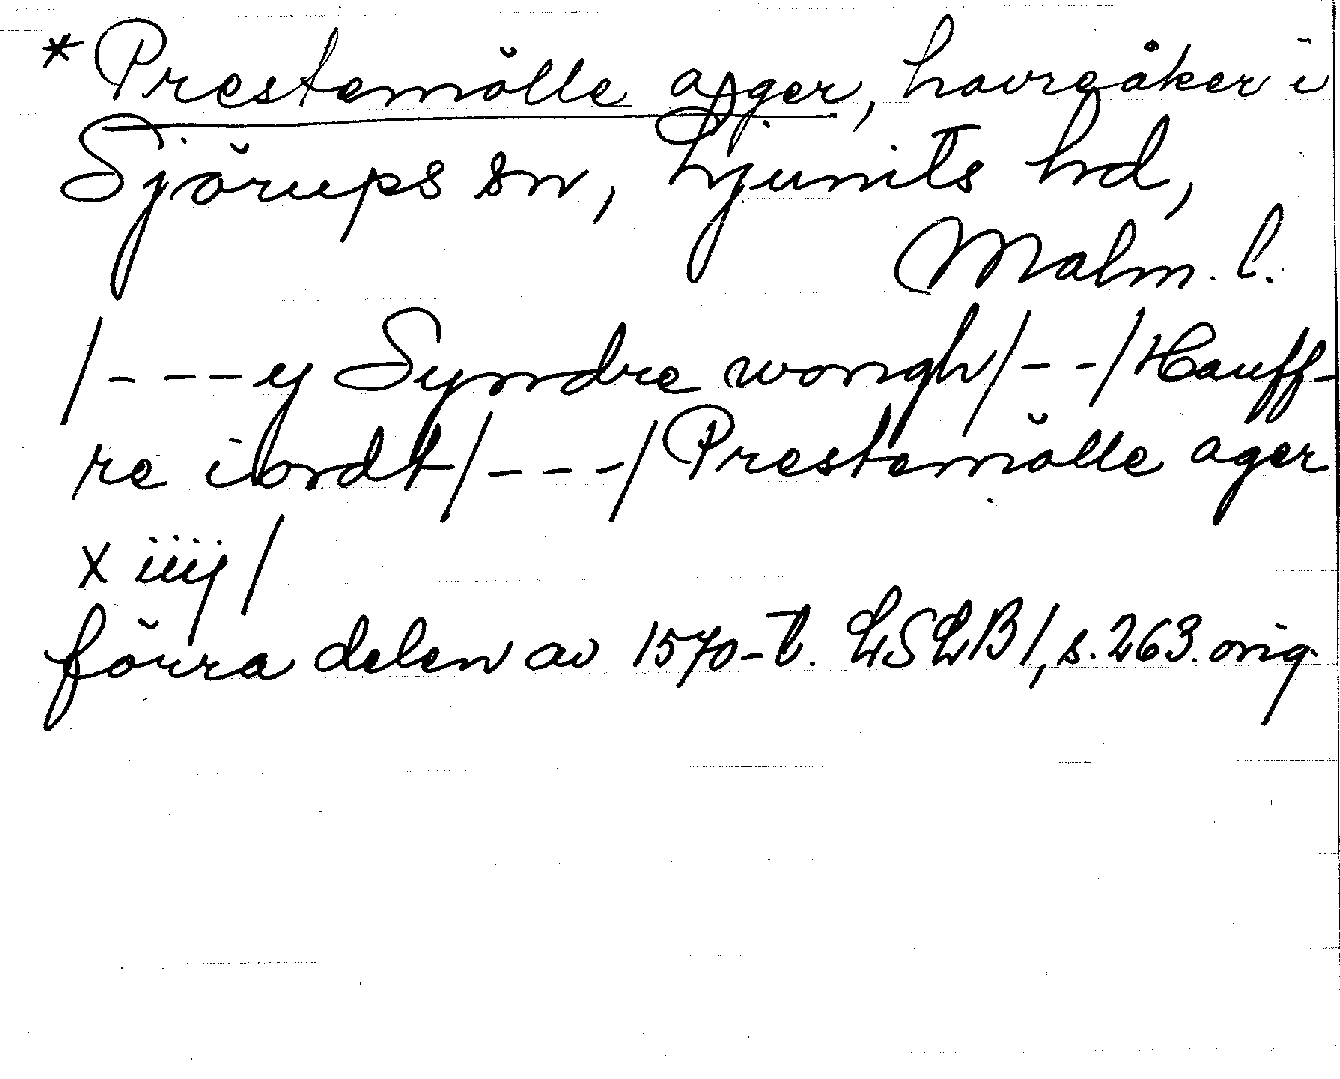 * Prestemölle ager, havreåker i
Sjörups sn, Ljunits hd,
Malm. l.
/- - - y Syndre wongh/- -/Hauff-
re iordt/- - -/Prestemölle ager
x iiij/
förra delen av 1570-t. LSLB1, s. 263. orig